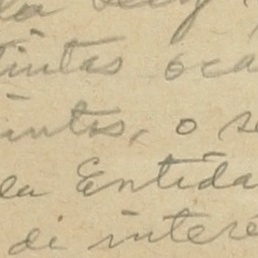 la
tintas oca
intos, o se
la Entida
di interé